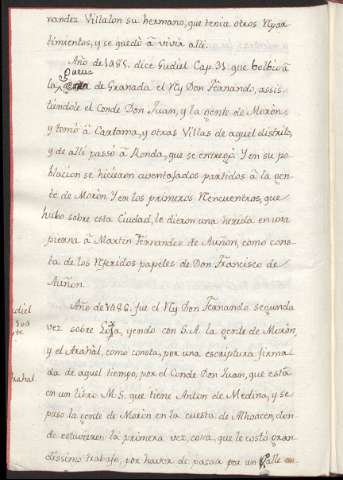 nandez Villalon su hermano, que tenia otros Repar-
timientos, y se quedó à vivir alli.
Año de 1485. dice Gudiel Cap. 31. que bolbió à
Guerra
la de Granada el Rey Don Fernando, assis-
tiendole el Conde Don Juan, y la gente de Moron
y tomó à Cartama, y otras Villas de aquel distrito,
y de alli passò à Ronda, que se entregó. Y en su po-
blacion se hicieron aventajados partidos à la gen-
te de Moròn. Y en los primeros Rencuentros, que
hubo sobre esta Ciudad, le dieron una herida en una
pierna à Martin Fernandez de Auñon, como cons-
ta de los Referidos papeles de Don Francisco de
Auñon.
Año de 1486. fue el Rey Don Fernando segunda
vez sobre Loxa, yendo con S.A. la gente de Moròn,
y el Arahàl, como consta, por una escriptura firma-
da de aquel tiempo, por el Conde Don Juan, que està
en un libro M.S. que tiene Anton de Medina, y se
puso la gente de Moròn en la cuesta de Alboacen, don
de estuvieron la primera vez, cosa, que le costó gran
dissimo trabajo, por haver de passar por un Valle
diel
te
Arahal.